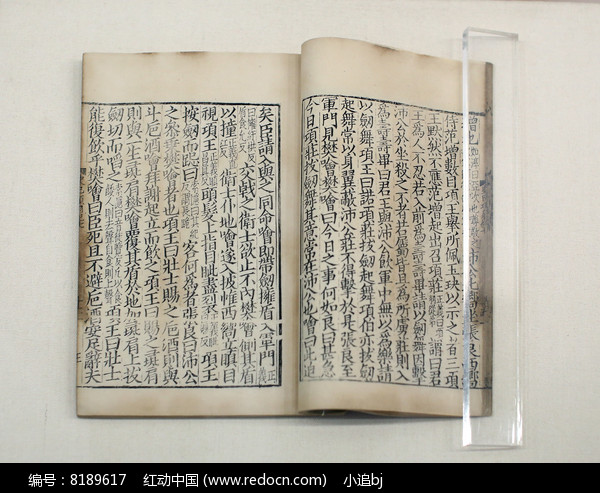 沛公北嚮坐張良西嚮
侍范增數目項王舉所佩玉玦以示之者三項
王默然不應范增起出召項莊謂曰君
王爲人不忍若入前爲壽壽畢請以劒舞因擊
沛公於坐殺之不者若屬皆且爲所虜莊則入
爲壽壽畢曰君王與沛公飲軍中無以爲樂請
以劒舞項王曰諾項莊拔劒起舞項伯亦拔劒
起舞常以身翼蔽沛公莊不得擊於是張良至
軍門見樊噲樊噲曰今日之事何如良曰甚急
今日項莊拔劒舞其意常在沛公也噲曰此迫
矣臣請入與之同命噲即帶劒擁盾入軍門正義
交戟之衛士欲止不內樊噲側其盾
以撞衛士仆地噲遂入披帷西嚮立瞋目
視項王頭髮上指目眥盡裂項王
按劒而跽曰客何爲者張良曰沛公
之參乘樊噲者也項王曰壯士賜之卮酒則與
斗卮酒噲拜謝起立而飲之項王曰賜之彘肩
則與一生彘肩樊噲覆其盾於地加彘肩上拔
劒切而啗之項王曰壯士
能復飲乎樊噲曰臣死且不避卮酒安足辭夫
编号：8189617 红动中国 (www.redocn.com) 小追bj